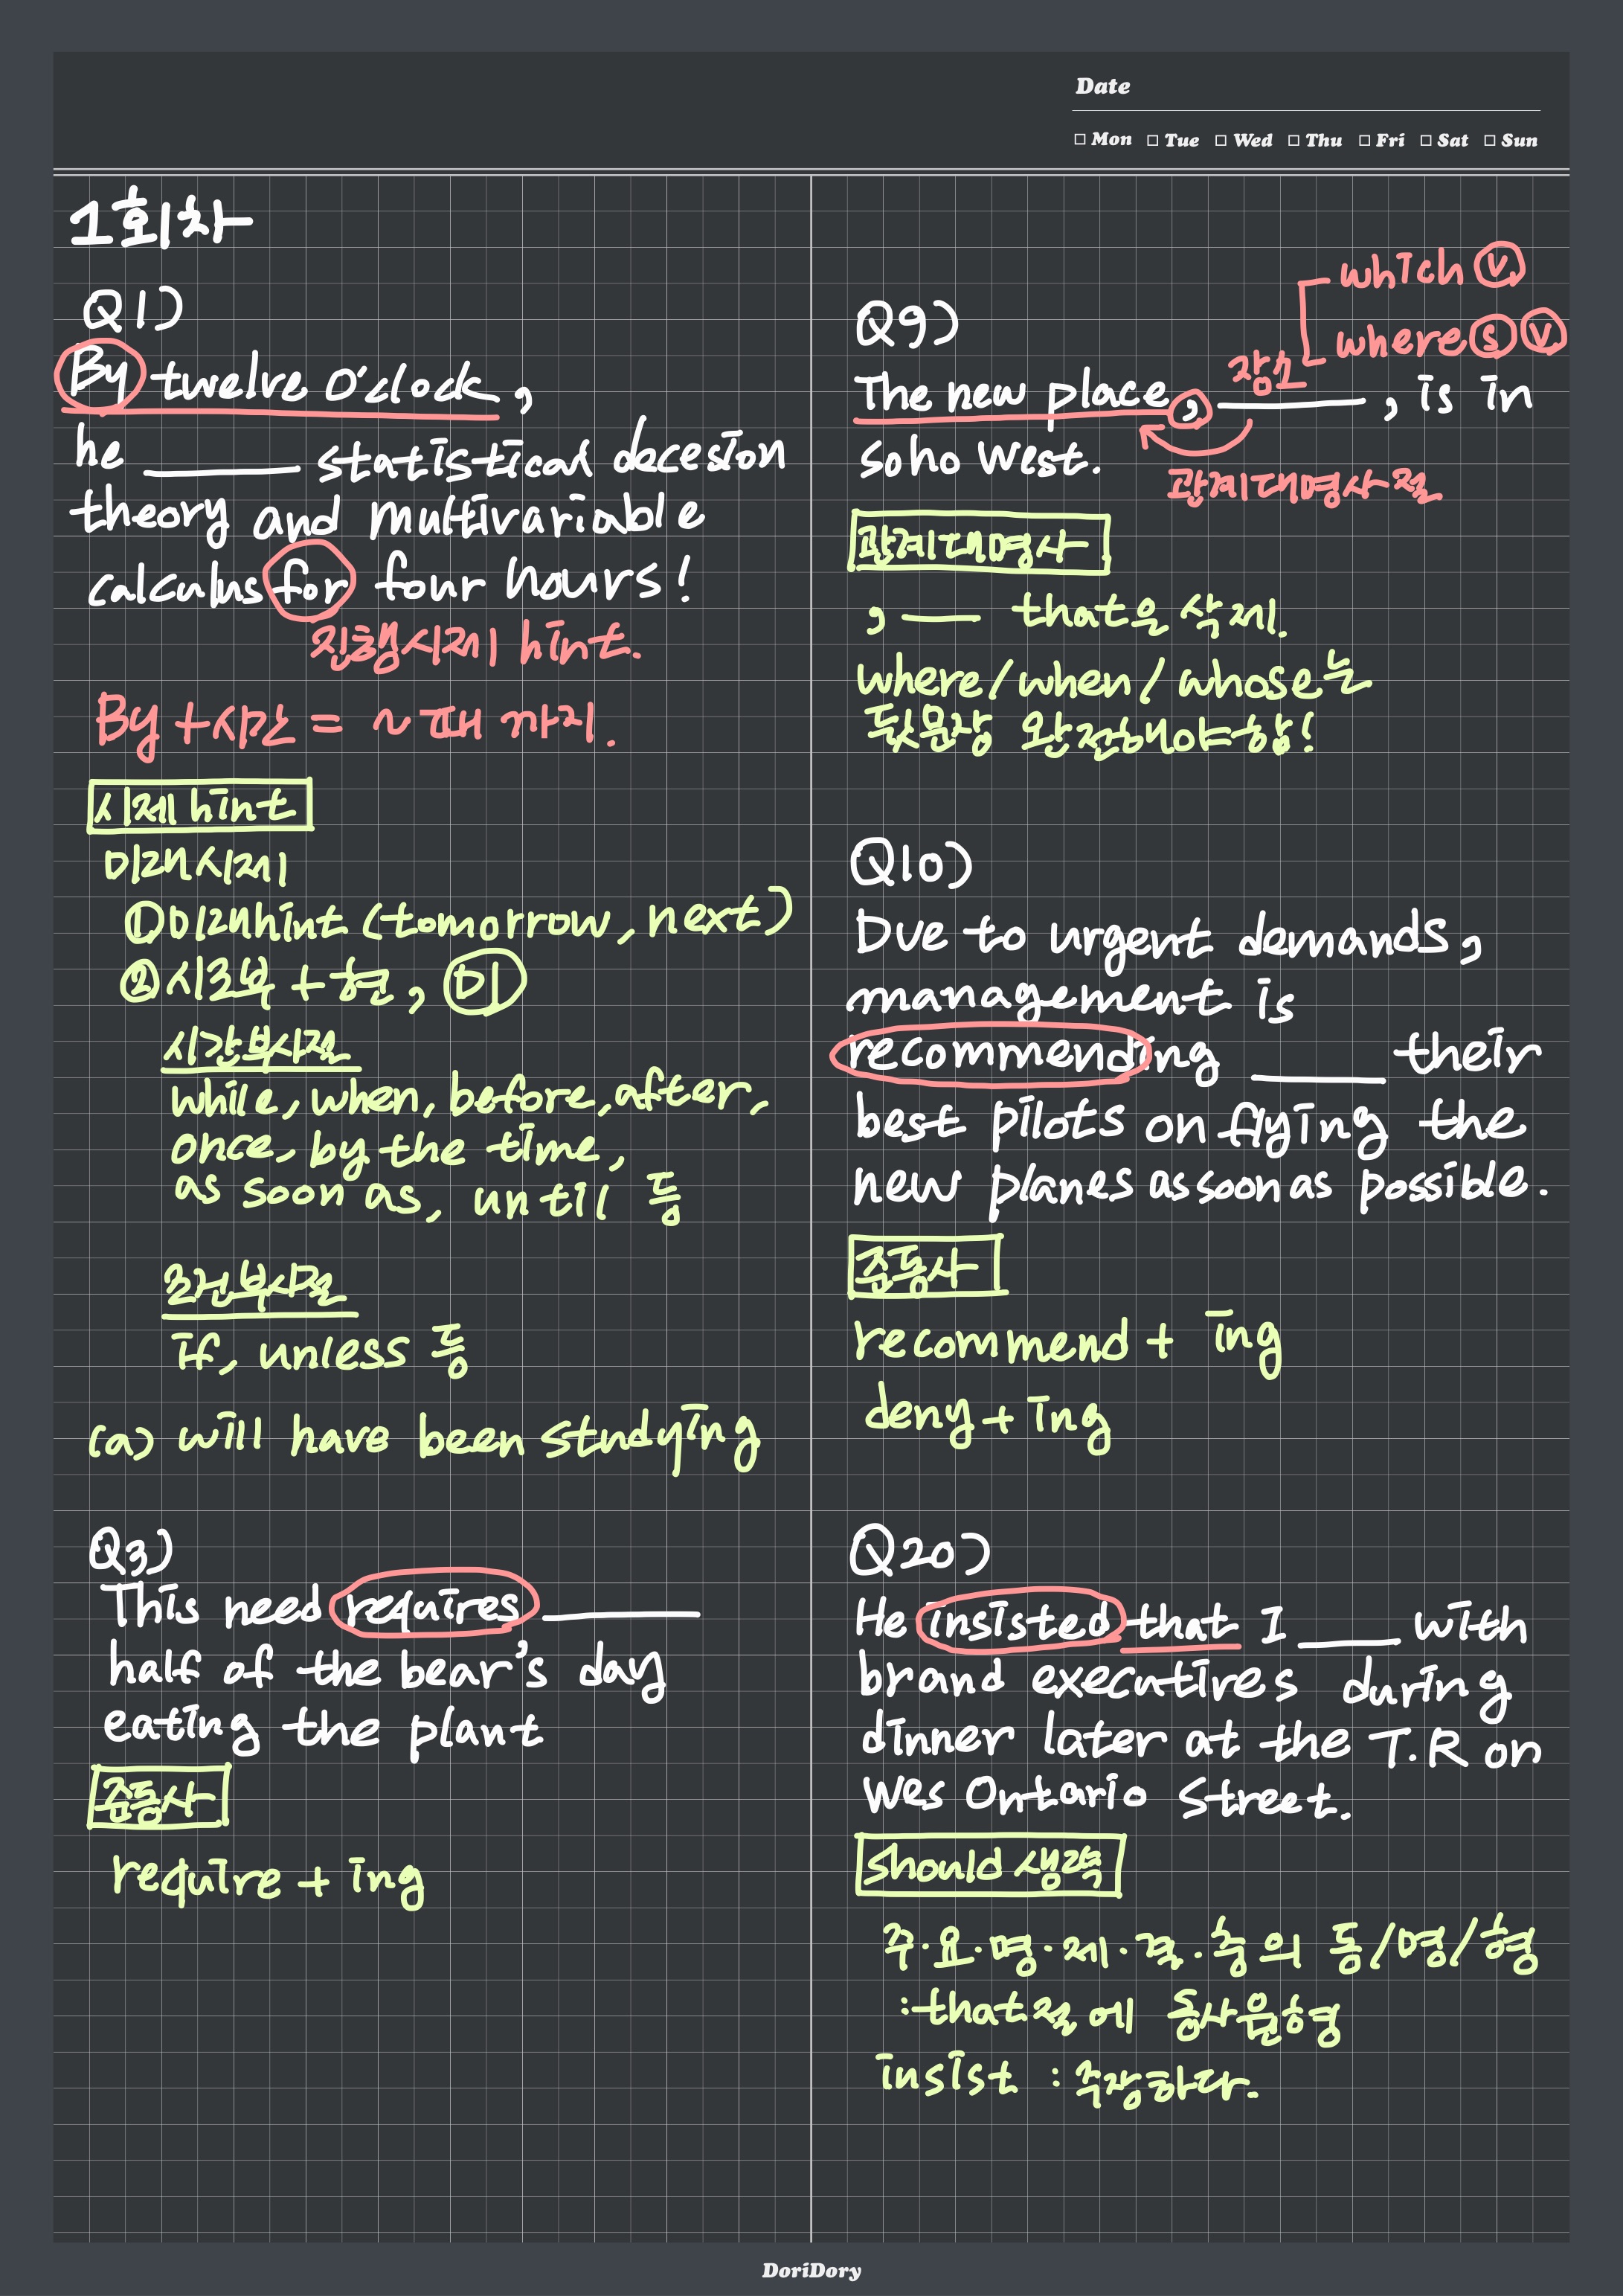 Date
Mon Tue Wed Thu Fri Sat Sun
1회차
Q1)
By twelve O'clock,
he ______ statistical decesion
theory and multivariable
calculus for four hours!
진행시제 hint.
By +시간 = ~때 까지.
시제 hint
미래시제
① 미래hint (tomorrow, next)
② 시조부 + 현, 미
시간부사절
while, when, before, after,
once, by the time,
as soon as, until 등
조건부사절
if, unless 등
(a) will have been studying
Q3)
This need requires ______
half of the bear's day
eating the plant
준동사
require + ing
Q9)
which ⓥ
where ⓢ ⓥ
장소
The new place, ______, is in
soho West.
관계대명사절
관계대명사
, ___ that은 삭제.
where/when/whose는
뒷문장 완전해야함!
Q10)
Due to urgent demands,
management is
recommending ______ their
best pilots on flying the
new planes as soon as possible.
준동사
recommend + ing
deny + ing
Q20)
He insisted that I ____ with
brand executives during
dinner later at the T.R on
Wes Ontario Street.
should 생략
주·요·명·제·결·충의 동/명/형
:that절에 동사원형
insist : 주장하다.
DoriDory